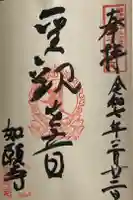 奉拝 令和七年三月廿二日
聖観音
如願寺